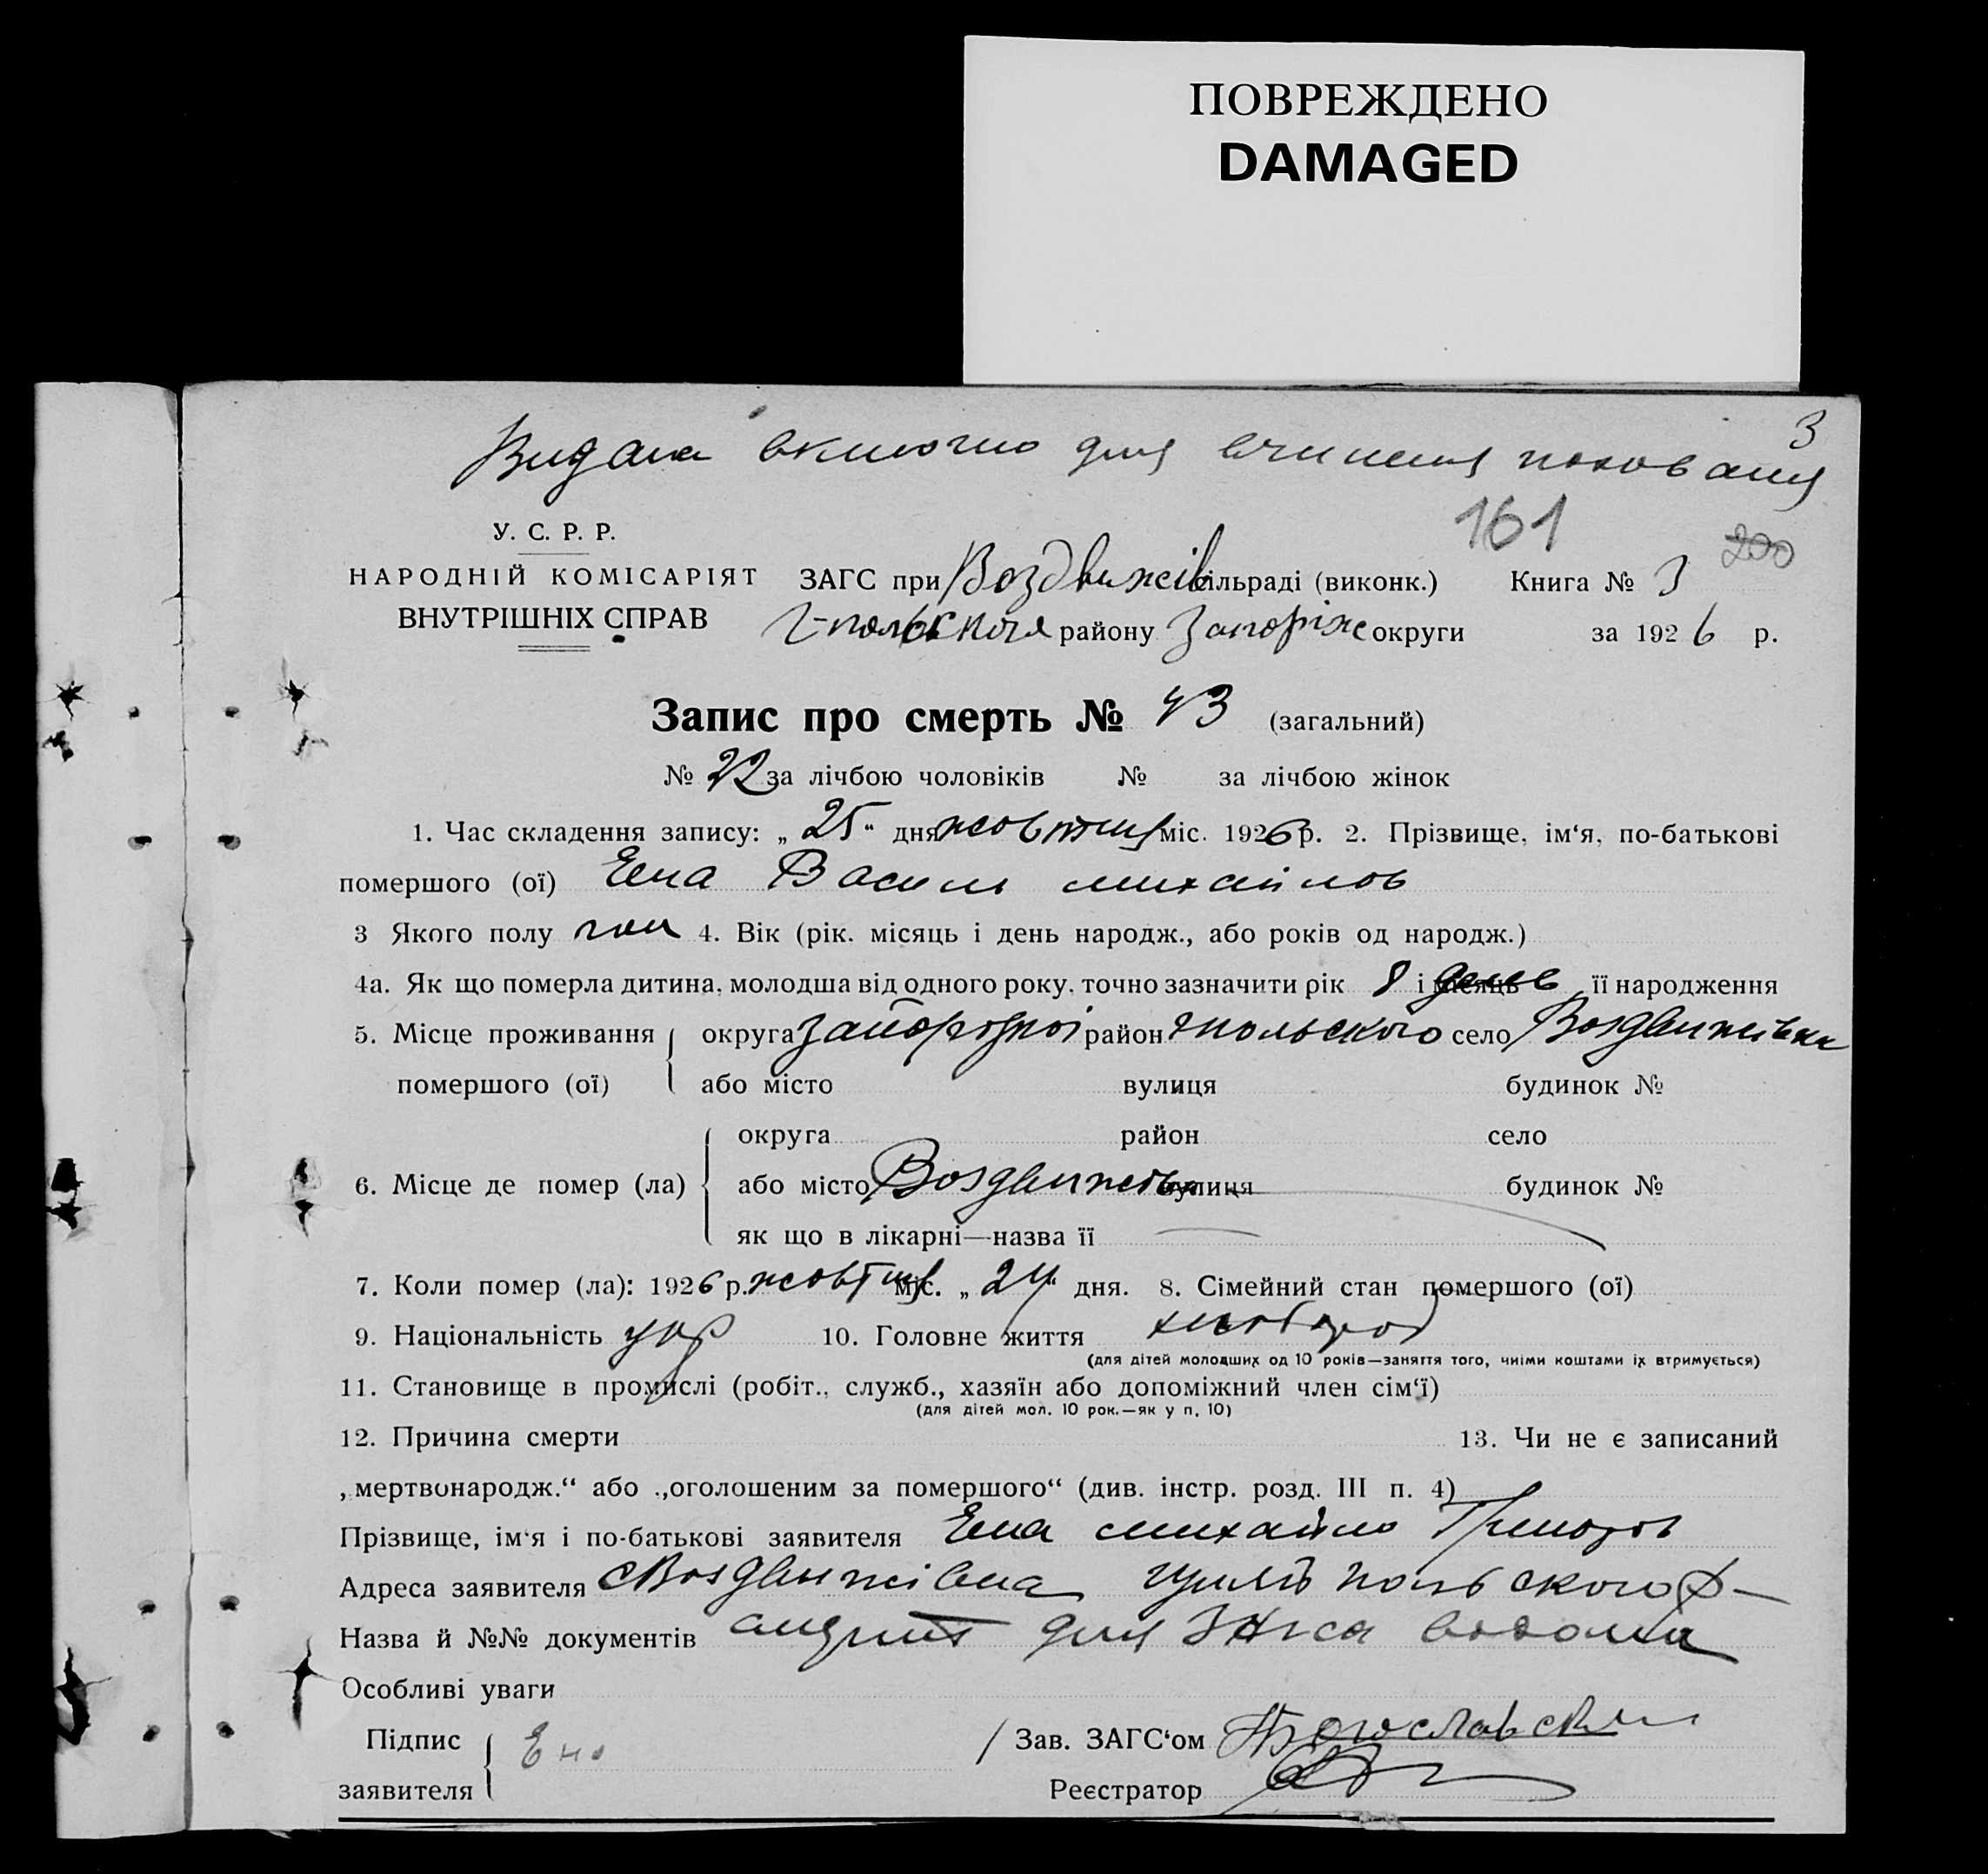 ПОВРЕЖДЕНО
DAMAGED
3
Видана для вчинення поховання
161
200
У. С. Р. Р.
НАРОДНІЙ КОМІСАРІЯТ
ВНУТРІШНІХ СПРАВ
ЗАГС при Воздвижів сільраді (виконк.) Книга № 3
Г-польського району Запоріж округи за 1926 р.
Запис про смерть № 43 (загальний)
№ 22 за лічбою чоловіків № за лічбою жінок
1. Час складення запису: „25“ дня жовтня міс. 1926 р. 2. Прізвище, ім‘я, по-батькові
помершого (ої) Ена Василь Михайлов
3 Якого полу чол 4. Вік (рік. місяць і день народж., або років од народж.)
4а. Як що померла дитина, молодша від одного року, точно зазначити рік 8 і місяць день її народження
5. Місце проживання помершого (ої) округа район гпольського село Воздвижівка
або місто вулиця будинок №
6. Місце де помер (ла) округа район село
або місто Воздвижівка вулиця будинок №
як що в лікарні—назва її
7. Коли помер (ла): 1926 р. жовтня міс. „24“ дня. 8. Сімейний стан помершого (ої)
9. Національність укр 10. Головне життя хлібороб
(для дітей молодших од 10 років—заняття того, чиїми коштами їх втримується)
11. Становище в промислі (робіт., служб., хазяїн або допоміжний член сім‘ї)
(для дітей мол. 10 рок.—як у п. 10)
12. Причина смерти 13. Чи не є записаний
„мертвонародж.“ або „оголошеним за помершого“ (див. інстр. розд. III п. 4)
Прізвище, ім‘я і по-батькові заявителя Ена Михайло
Адреса заявителя с Воздвижівка Гуляйпольського р-
Назва й №№ документів для
Особливі уваги
Підпис заявителя Ена
Зав. ЗАГС‘ом Богославский
Реєстратор